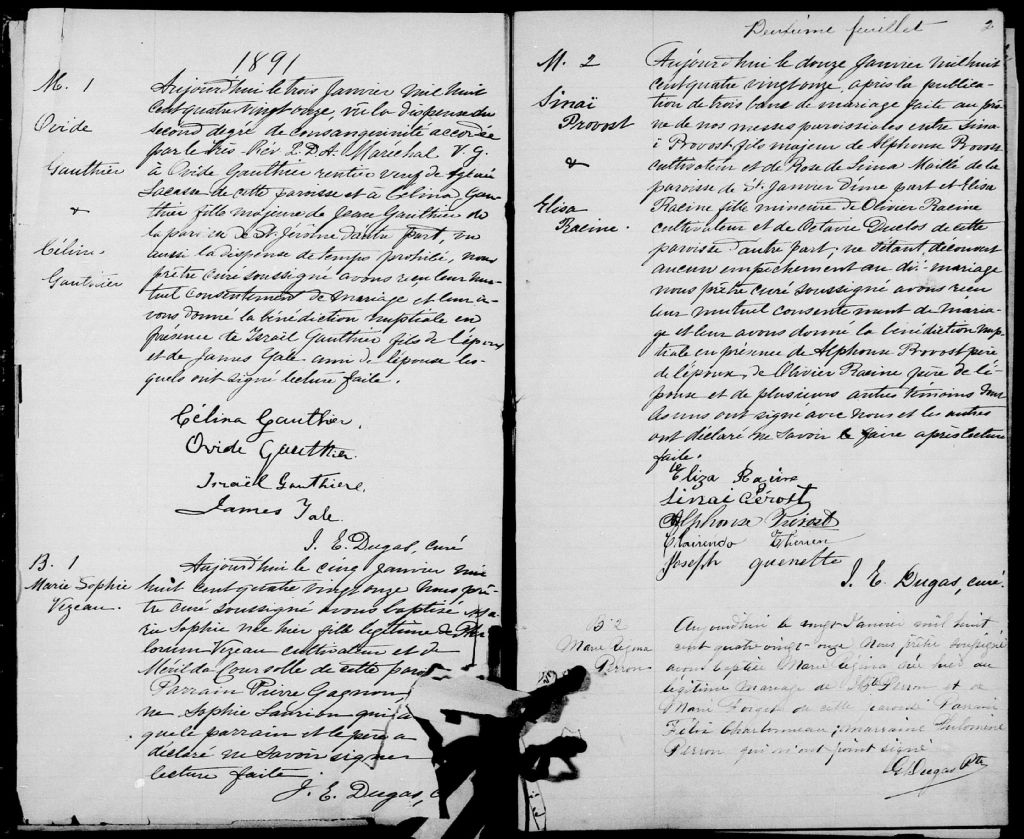 1891
M. 1
Ovide
Gauthier
&
Célina
Gauthier
Aujourd'hui le trois Janvier mil huit
cent quatre vingt onze, vu la dispense du
second degré de consanguinité accordée
par le très Rév. P. D. A. Maréchal V. G.
à Ovide Gauthier rentier veuf de
Lacasse de cette paroisse et à Célina Gau-
thier fille majeure de Jean Gauthier de
la paroisse de St. Jérôme d'autre part, vu
aussi la dispense de temps prohibé, nous
prêtre curé soussigné avons reçu leur mu-
tuel consentement de mariage et leur a-
vons donné la bénédiction nuptiale en
présence de Israël Gauthier fils de l'époux
et de James Yale ami de l'épouse les-
quels ont signé lecture faite.
Célina Gauthier.
Ovide Gauthier
Israël Gauthier.
James Yale.
J. E. Dugas, curé
B. 1
Marie Sophie
Vézeau.
Aujourd'hui le cinq Janvier mil
huit cent quatre vingt onze nous prê-
tre curé soussigné avons baptisé Ma-
rie Sophie née hier fille légitime de
Vézeau cultivateur et de
Mérilda Coursolle de cette paroi
Parrain Pierre Gagnon
ne Sophie Laurion qui
que le parrain et le père a
déclaré ne savoir signer
lecture faite
J. E. Dugas, c
Deuxième feuillet 2
M. 2
Sinaï
Provost
&
Elisa
Racine.
Aujourd'hui le douze Janvier mil huit
cent quatre vingt onze, après la publica-
tion de trois bans de mariage faite au prô-
ne de nos messes paroissiales entre Sina-
i Provost fils majeur de Alphonse Provost
cultivateur et de Rose de Lima Maillé de la
paroisse de St. Janvier d'une part et Elisa
Racine fille mineure de Olivier Racine
cultivateur et de Octavie Duclos de cette
paroisse d'autre part; ne s'étant découvert
aucun empêchement au dit mariage
nous prêtre curé soussigné avons reçu
leur mutuel consentement de maria-
ge et leur avons donné la bénédiction nup-
tiale en présence de Alphonse Provost père
de l'époux, de Olivier Racine père de l'é-
pouse et de plusieurs autres témoins dont
les uns ont signé avec nous et les autres
ont déclaré ne savoir le faire après lecture
faite.
Eliza Racine
Sinai Pérost
Alphonse Prévost
Clairendo Therrien
Joseph quenette
J. E. Dugas, curé.
B. 2
Marie Regina
Perron
Aujourd'hui le vingt Janvier mil huit
cent quatre vingt onze Nous prêtre soussigné
avons baptisé Marie Régina née hier du
légitime mariage de Perron et de
Marie Forget de cette paroisse Parrain
Félix Charbonneau; marraine Philomène
Perron qui n'ont point signé
G. Dugas Ptre